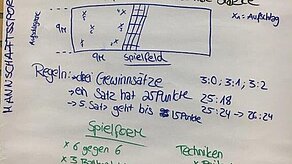 MANNSCHAFTSSPOR
x₁ = Aufschlag
9m
9m
Spielfeld
Regeln: → drei Gewinnsätze 3:0; 3:1; 3:2
→ ein Satz hat 25 Punkte 25:18
→ 5. Satz geht bis 15 Punkte 25:24 → 26:24
Spielform
x 6 gegen 6
Techniken
x 3